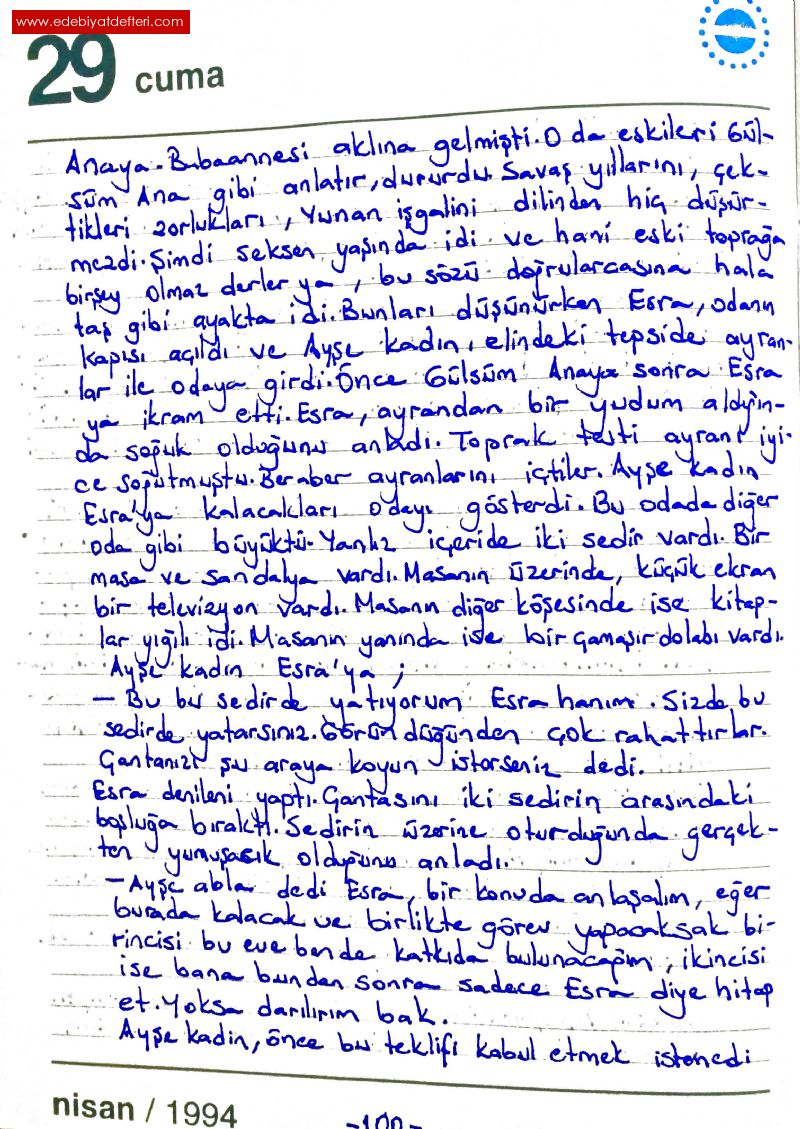 www.edebiyatdefteri.com
29 cuma
Anaya. Babaannesi aklına gelmişti. O da eskileri Gül-
süm Ana gibi anlatır, dururdu. Savaş yıllarını, çek-
tikleri zorlukları, Yunan işgalini dilinden hiç düşür-
mezdi. Şimdi seksen yaşında idi ve hani eski toprağa
birşey olmaz derler ya, bu sözü doğrularcasına hala
taş gibi ayakta idi. Bunları düşünürken Esra, odanın
kapısı açıldı ve Ayşe kadın, elindeki tepside ayran-
lar ile odaya girdi. Önce Gülsüm Anaya sonra Esra
ya ikram etti. Esra, ayrandan bir yudum aldığın-
da soğuk olduğunu anladı. Toprak testi ayranı iyi-
ce soğutmuştu. Beraber ayranlarını içtiler. Ayşe kadın
Esra'ya kalacakları odayı gösterdi. Bu odada diğer
oda gibi büyüktü. Yanlız içeride iki sedir vardı. Bir
masa ve sandalya vardı. Masanın üzerinde, küçük ekran
bir televizyon vardı. Masanın diğer köşesinde ise kitap-
lar yığılı idi. Masanın yanında ise bir çamaşır dolabı vardı.
Ayşe kadın Esra'ya;
- Bu bu sedirde yatıyorum Esra hanım. Sizde bu
sedirde yatarsınız. Göründüğünden çok rahattırlar.
Çantanızı şu araya koyun isterseniz dedi.
Esra denileni yaptı. Çantasını iki sedirin arasındaki
boşluğa bıraktı. Sedirin üzerine oturduğunda gerçek-
ten yumuşacık olduğunu anladı.
- Ayşe abla dedi Esra, bir konuda anlaşalım, eğer
burada kalacak ve birlikte görev yapacaksak bi-
rincisi bu eve bende katkıda bulunacağım, ikincisi
ise bana bundan sonra sadece Esra diye hitap
et. Yoksa darılırım bak.
Ayşe kadın, önce bu teklifi kabul etmek istemedi
nisan / 1994
-100-